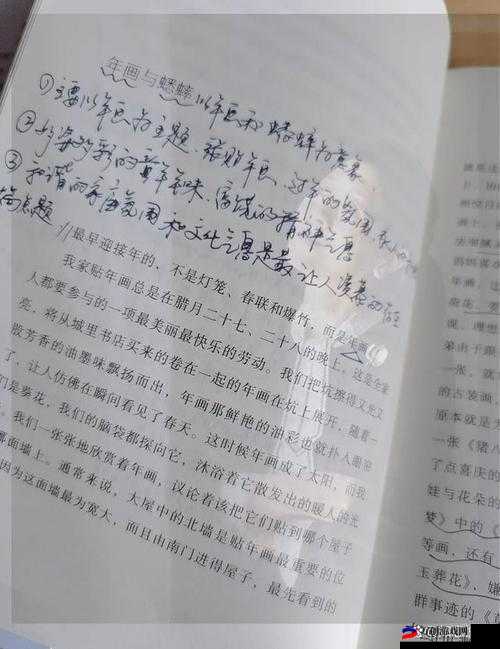 年画与蟋蟀 以年画和蟋蟀为意象
①主要以年画为主题，张贴年画，过年的氛围
②多姿多彩的童年年味，富饶的精神气息
③和谐的家庭氛围和文化气息是最让人羡慕的
简点题
最早迎接年的，不是灯笼、春联和爆竹，而是年画。
我家贴年画总是在腊月二十七、二十八的晚上，这是全家
人都要参与的一项最美丽最快乐的劳动。我们把炕擦得又光又
亮，将从城里书店买来的卷在一起的年画在炕上展开，随着一
散芳香的油墨味飘扬而出，年画那鲜艳的油彩也就扑人眼帘
了，让人仿佛在瞬间看见了春天。这时候年画成了太阳，而我
们是葵花，我们的脑袋都探向它，沐浴着它散发出的暖人的光
。我们一张张地欣赏着年画，议论着该把它们贴到哪个屋子
哪面墙上。通常来说，大屋中的北墙是贴年画最重要的位
因为这面墙最为宽大，而且由南门进得屋子，最先看到的
原本就是
一张《猪八
了点喜庆的
娃与花朵的
梦》中的《
等画，还有
玉葬花》，嫌
群事迹的《
游戏网